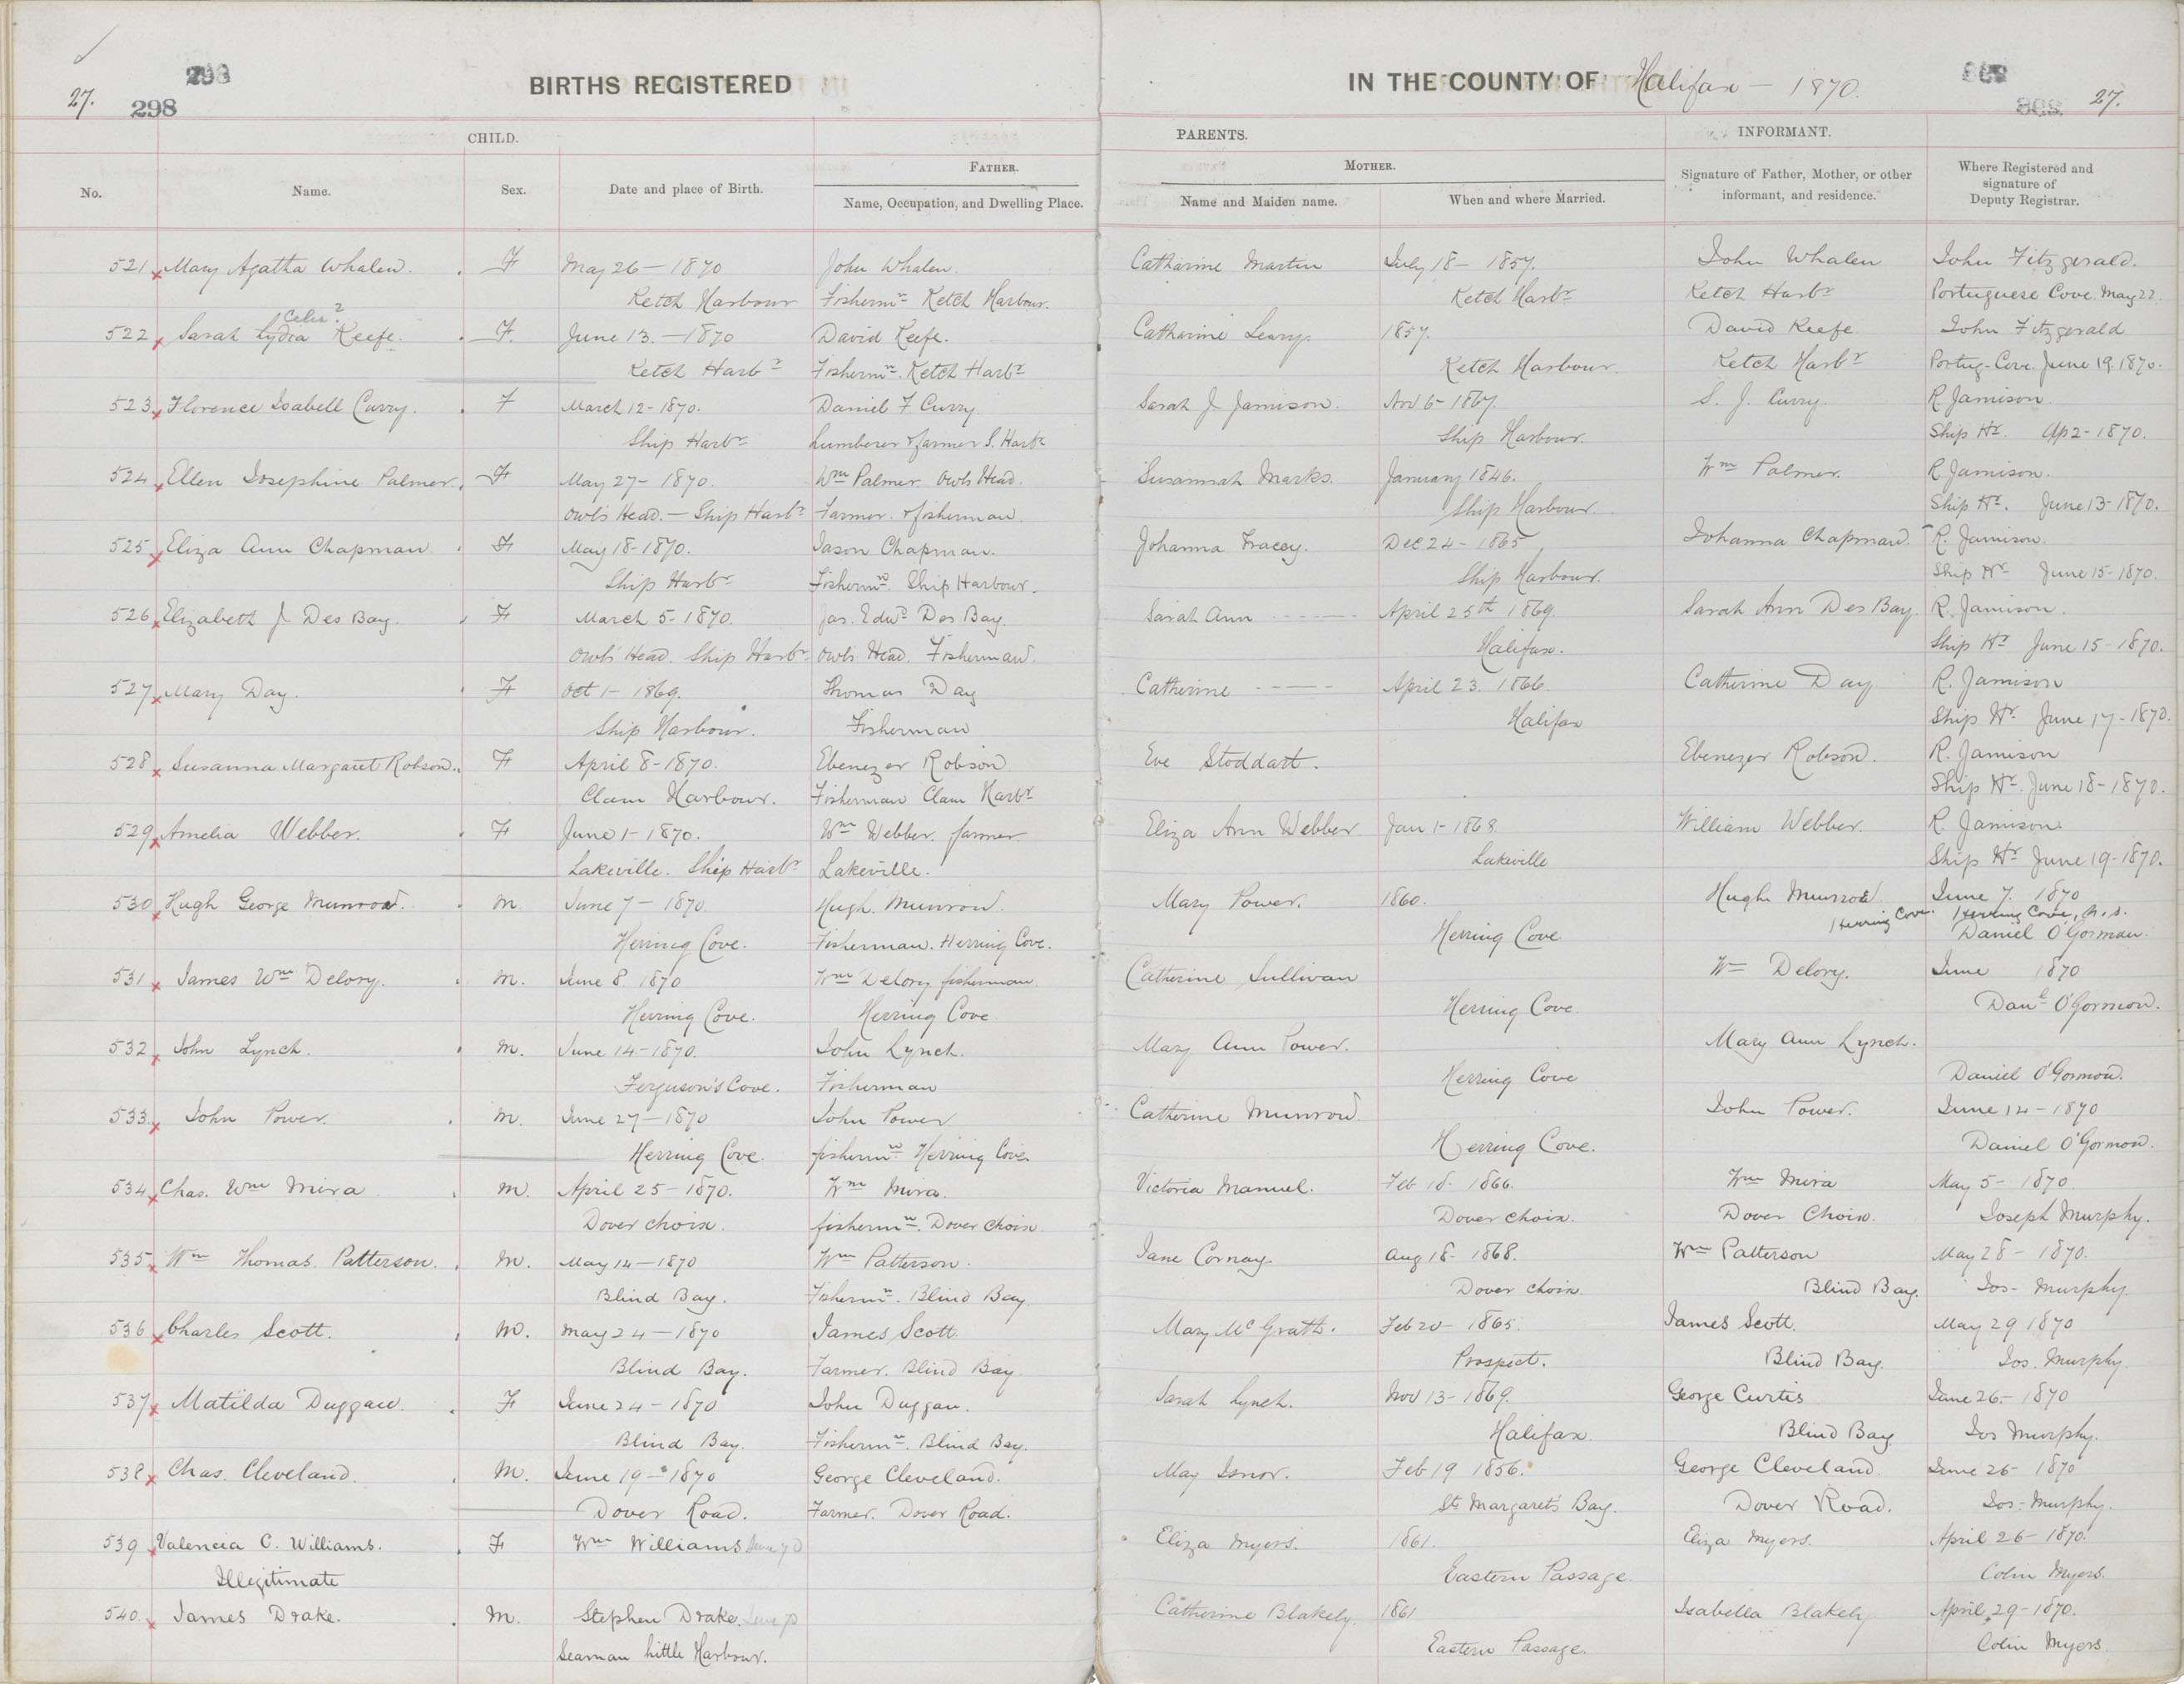 298
298
27.
BIRTHS REGISTERED
IN THE COUNTY OF Halifax — 1870.
27.
CHILD.
PARENTS.
INFORMANT.
FATHER.
MOTHER.
No. Name. Sex. Date and place of Birth. Name, Occupation, and Dwelling Place. Name and Maiden name. When and where Married. Signature of Father, Mother, or other informant, and residence. Where Registered and signature of Deputy Registrar.
521 Mary Agatha Whalen. F May 26 – 1870 John Whalen. Catharine Martin July 18 – 1857. John Whalen John Fitzgerald.
Ketch Harbour Fisherm<sup>n</sup> Ketch Harbour. Ketch Harb<sup>r</sup> Ketch Harb<sup>r</sup> Portuguese Cove. May 27
Celia?
522 Sarah Lydia Keefe. F. June 13. – 1870 David Keefe. Catharine Leary. 1857. David Keefe. John Fitzgerald
Ketch Harb<sup>r</sup> Fisherm<sup>n</sup>. Ketch Harb<sup>r</sup> Ketch Harbour. Ketch Harb<sup>r</sup> Portug. Cove. June 19. 1870.
523 Florence Isabell Curry. F March 12 – 1870. Daniel F Curry Sarah J Jamison. Nov 6 – 1867. S. J. Curry. R. Jamison.
Ship Harb<sup>r</sup> Lumberer & farmer S. Harb<sup>r</sup> Ship Harbour. Ship Hr. Ap 2 – 1870.
524 Ellen Josephine Palmer. F May 27 – 1870. W<sup>m</sup> Palmer Owls Head. Susannah Marks. January 1846. W<sup>m</sup> Palmer. R. Jamison.
Owls Head. – Ship Harb<sup>r</sup> Farmer. & fisherman Ship Harbour. Ship Hr. June 13 – 1870.
525 Eliza Ann Chapman F May 18 – 1870. Jason Chapman. Johanna Tracey. Dec 24 – 1865 Johanna Chapman. R. Jamison.
Ship Harb<sup>r</sup> Fisherm<sup>n</sup>. Ship Harbour. Ship Harbour. Ship Hr June 15 – 1870.
526 Elizabeth J Des Bay. F March 5 – 1870. Jas. Edw<sup>d</sup> Des Bay. Sarah Ann ------ April 25th 1869. Sarah Ann Des Bay R. Jamison.
Owls Head. Ship Harb<sup>r</sup> Owls Head. Fisherman. Halifax. Ship Hr June 15 – 1870.
527 Mary Day. F Oct 1 – 1869. Thomas Day Catherine ----- April 23. 1866 Catherine Day R. Jamison
Ship Harbour. Fisherman Halifax Ship Hr. June 17 – 1870.
528 Susanna Margaret Robson. F April 8 – 1870. Ebenezer Robson Eve Stoddart. Ebenezer Robson. R. Jamison
Clam Harbour. Fisherman Clam Harb<sup>r</sup> Ship Hr. June 18 – 1870.
529 Amelia Webber. F June 1 – 1870. W<sup>m</sup> Webber. farmer Eliza Ann Webber Jan 1 – 1868 William Webber. R. Jamison.
Lakeville. Ship Harb<sup>r</sup> Lakeville. Lakeville Ship Hr June 19 – 1870.
530 Hugh George Munrow. M June 7 – 1870. Hugh. Munrow. Mary Power. 1860. Hugh Munrow June 7. 1870
Herring Cove. Fisherman. Herring Cove. Herring Cove Herring Cove. Herring Cove, N. S.
Daniel O'Gorman.
531 James W<sup>m</sup> Delory. M. June 8 1870 W<sup>m</sup> Delory fisherman. Catherine Sullivan W<sup>m</sup> Delory. June 1870
Herring Cove. Herring Cove Herring Cove. Dan<sup>l</sup> O'Gormon.
532 John Lynch. M. June 14 – 1870. John Lynch. Mary Ann Power. Mary Ann Lynch.
Ferguson's Cove. Fisherman Herring Cove Daniel O'Gormon.
533 John Power. M. June 27 – 1870 John Power. Catherine Munrow. John Power. June 14 – 1870
Herring Cove. fisherm<sup>n</sup>. Herring Cove. Herring Cove. Daniel O'Gormon.
534 Chas. W<sup>m</sup> Mira M. April 25 – 1870. W<sup>m</sup> Mira. Victoria Manuel. Feb 18. 1866. W<sup>m</sup> Mira May 5 – 1870
Dover choix. fisherm<sup>n</sup>. Dover choix Dover choix. Dover Choix. Joseph Murphy.
535 W<sup>m</sup> Thomas. Patterson. M. May 14 – 1870 W<sup>m</sup> Patterson. Jane Cornay. Aug 18 – 1868. W<sup>m</sup> Patterson May 28 – 1870.
Blind Bay. Fisherm<sup>n</sup>. Blind Bay. Dover choix Blind Bay. Jos – Murphy
536 Charles Scott. M. May 24 – 1870 James Scott Mary McGrath. Feb 20 – 1865. James Scott. May 29 1870
Blind Bay. Farmer. Blind Bay. Prospect. Blind Bay. Jos. Murphy.
537 Matilda Duggan. F June 24 – 1870 John Duggan. Sarah Lynch. Nov 13 – 1869. George Curtis June 26 – 1870
Blind Bay. Fisherm<sup>n</sup>. Blind Bay. Halifax. Blind Bay Jos Murphy.
538 Chas. Cleveland. M. June 19 – 1870 George Cleveland. May Isnor. Feb 19 1856. George Cleveland. June 26 1870
Dover Road. Farmer. Dover Road. St. Margaret's Bay. Dover Road. Jos – Murphy.
539 Valencia C. Williams. F W<sup>m</sup> Williams Eliza Myers. 1861. Eliza Myers. April 26 – 1870.
Illegitimate Eastern Passage. Colin Myers.
540 James Drake. M. Stephen Drake. Catherine Blakely. 1861 Isabella Blakely April 29 – 1870.
Seaman Little Harbour. Eastern Passage. Colin Myers